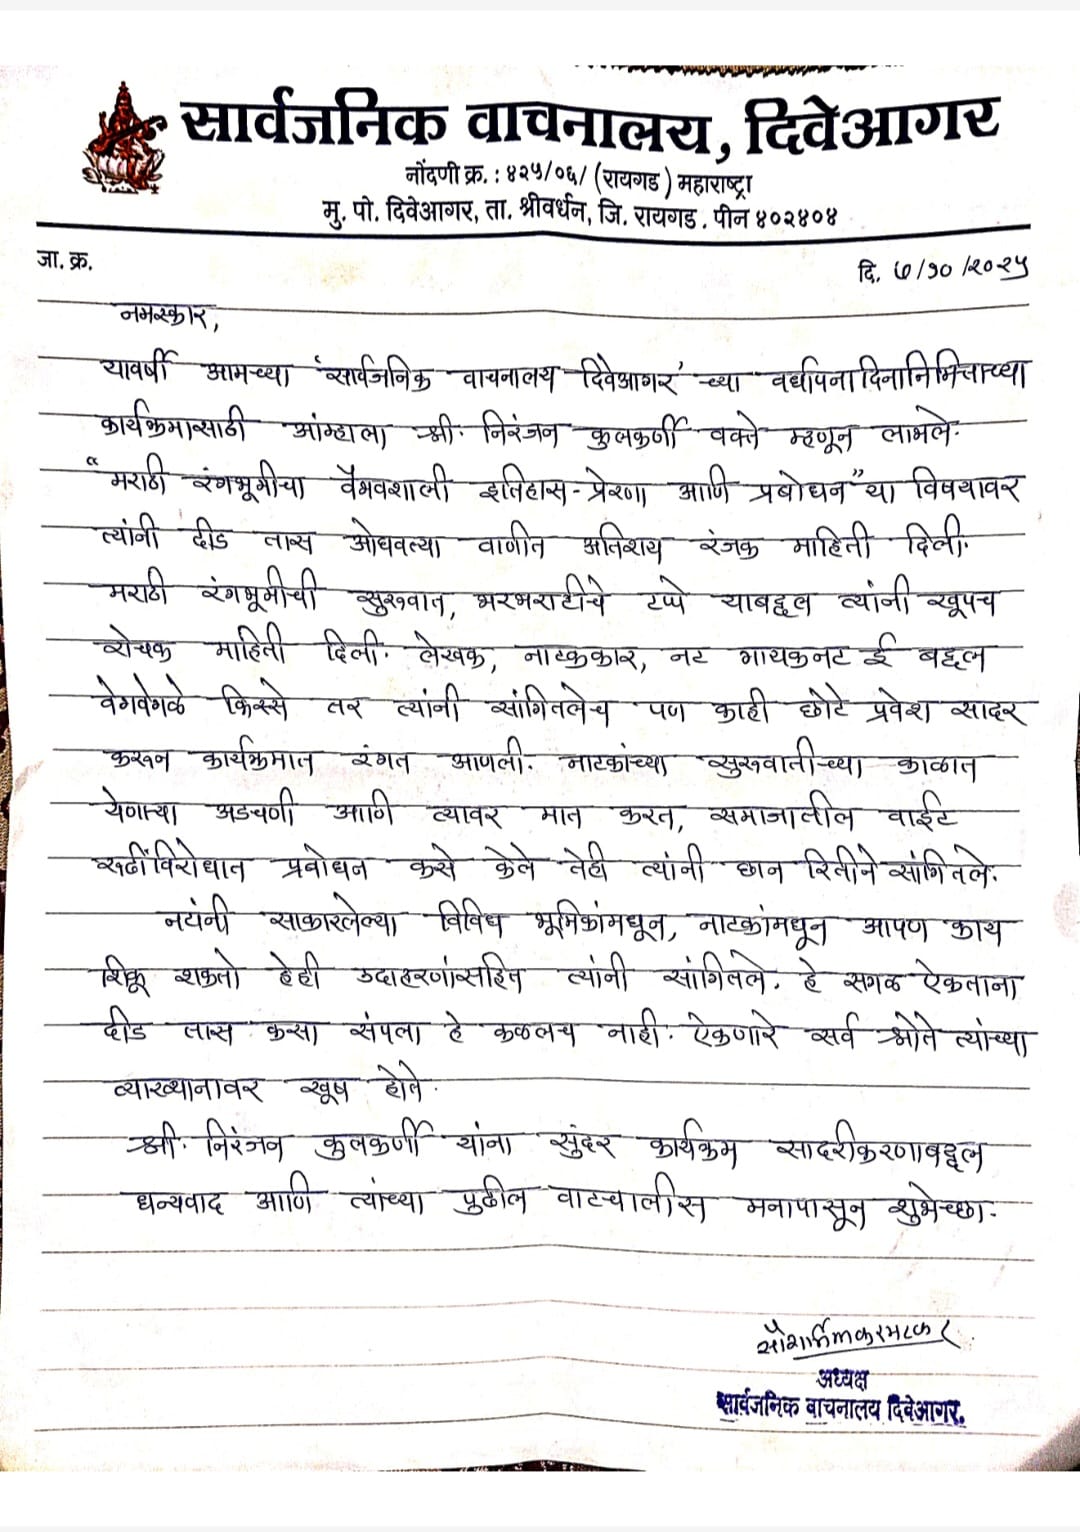 सार्वजनिक वाचनालय, दिवेआगर
नोंदणी क्र. : ४२५/०६/ (रायगड) महाराष्ट्रा
मु. पो. दिवेआगर, ता. श्रीवर्धन, जि. रायगड. पीन ४०२४०४
जा. क्र.
दि. ७/१०/२०२५
नमस्कार,
यावर्षी आमच्या 'सार्वजनिक वाचनालय दिवेआगर' च्या वर्धापनादिनानिमित्ताच्या
कार्यक्रमासाठी आंम्हाला श्री. निरंजन कुलकर्णी वक्ते म्हणून लाभले.
"मराठी रंगभूमीचा वैभवशाली इतिहास - प्रेरणा आणि प्रबोधन" या विषयावर
त्यांनी दीड तास ओघवत्या वाणीत अतिशय रंजक माहिती दिली.
मराठी रंगभूमीची सुरुवात, भरभराटीचे टप्पे याबद्दल त्यांनी खूपच
रोचक माहिती दिली. लेखक, नाटककार, नट गायकनट ई बद्दल
वेगवेगळे किस्से तर त्यांनी सांगितलेच पण काही छोटे प्रवेश सादर
करून कार्यक्रमात रंगत आणली. नाटकांच्या सुरुवातीच्या काळात
येणाऱ्या अडचणी आणि त्यावर मात करत, समाजातील वाईट
रूढींविरोधात प्रबोधन कसे केले तेही त्यांनी छान रितीने सांगितले.
नटांनी साकारलेल्या विविध भूमिकांमधून, नाटकांमधून आपण काय
शिकू शकतो हेही उदाहरणांसहित त्यांनी सांगितले. हे सगळ ऐकताना
दीड तास कसा संपला हे कळलच नाही. ऐकणारे सर्व श्रोते त्यांच्या
व्याख्यानावर खूष होते.
श्री. निरंजन कुलकर्णी यांना सुंदर कार्यक्रम सादरीकरणाबद्दल
धन्यवाद आणि त्यांच्या पुढील वाटचालीस मनापासून शुभेच्छा.
अध्यक्ष
सार्वजनिक वाचनालय दिवेआगर.